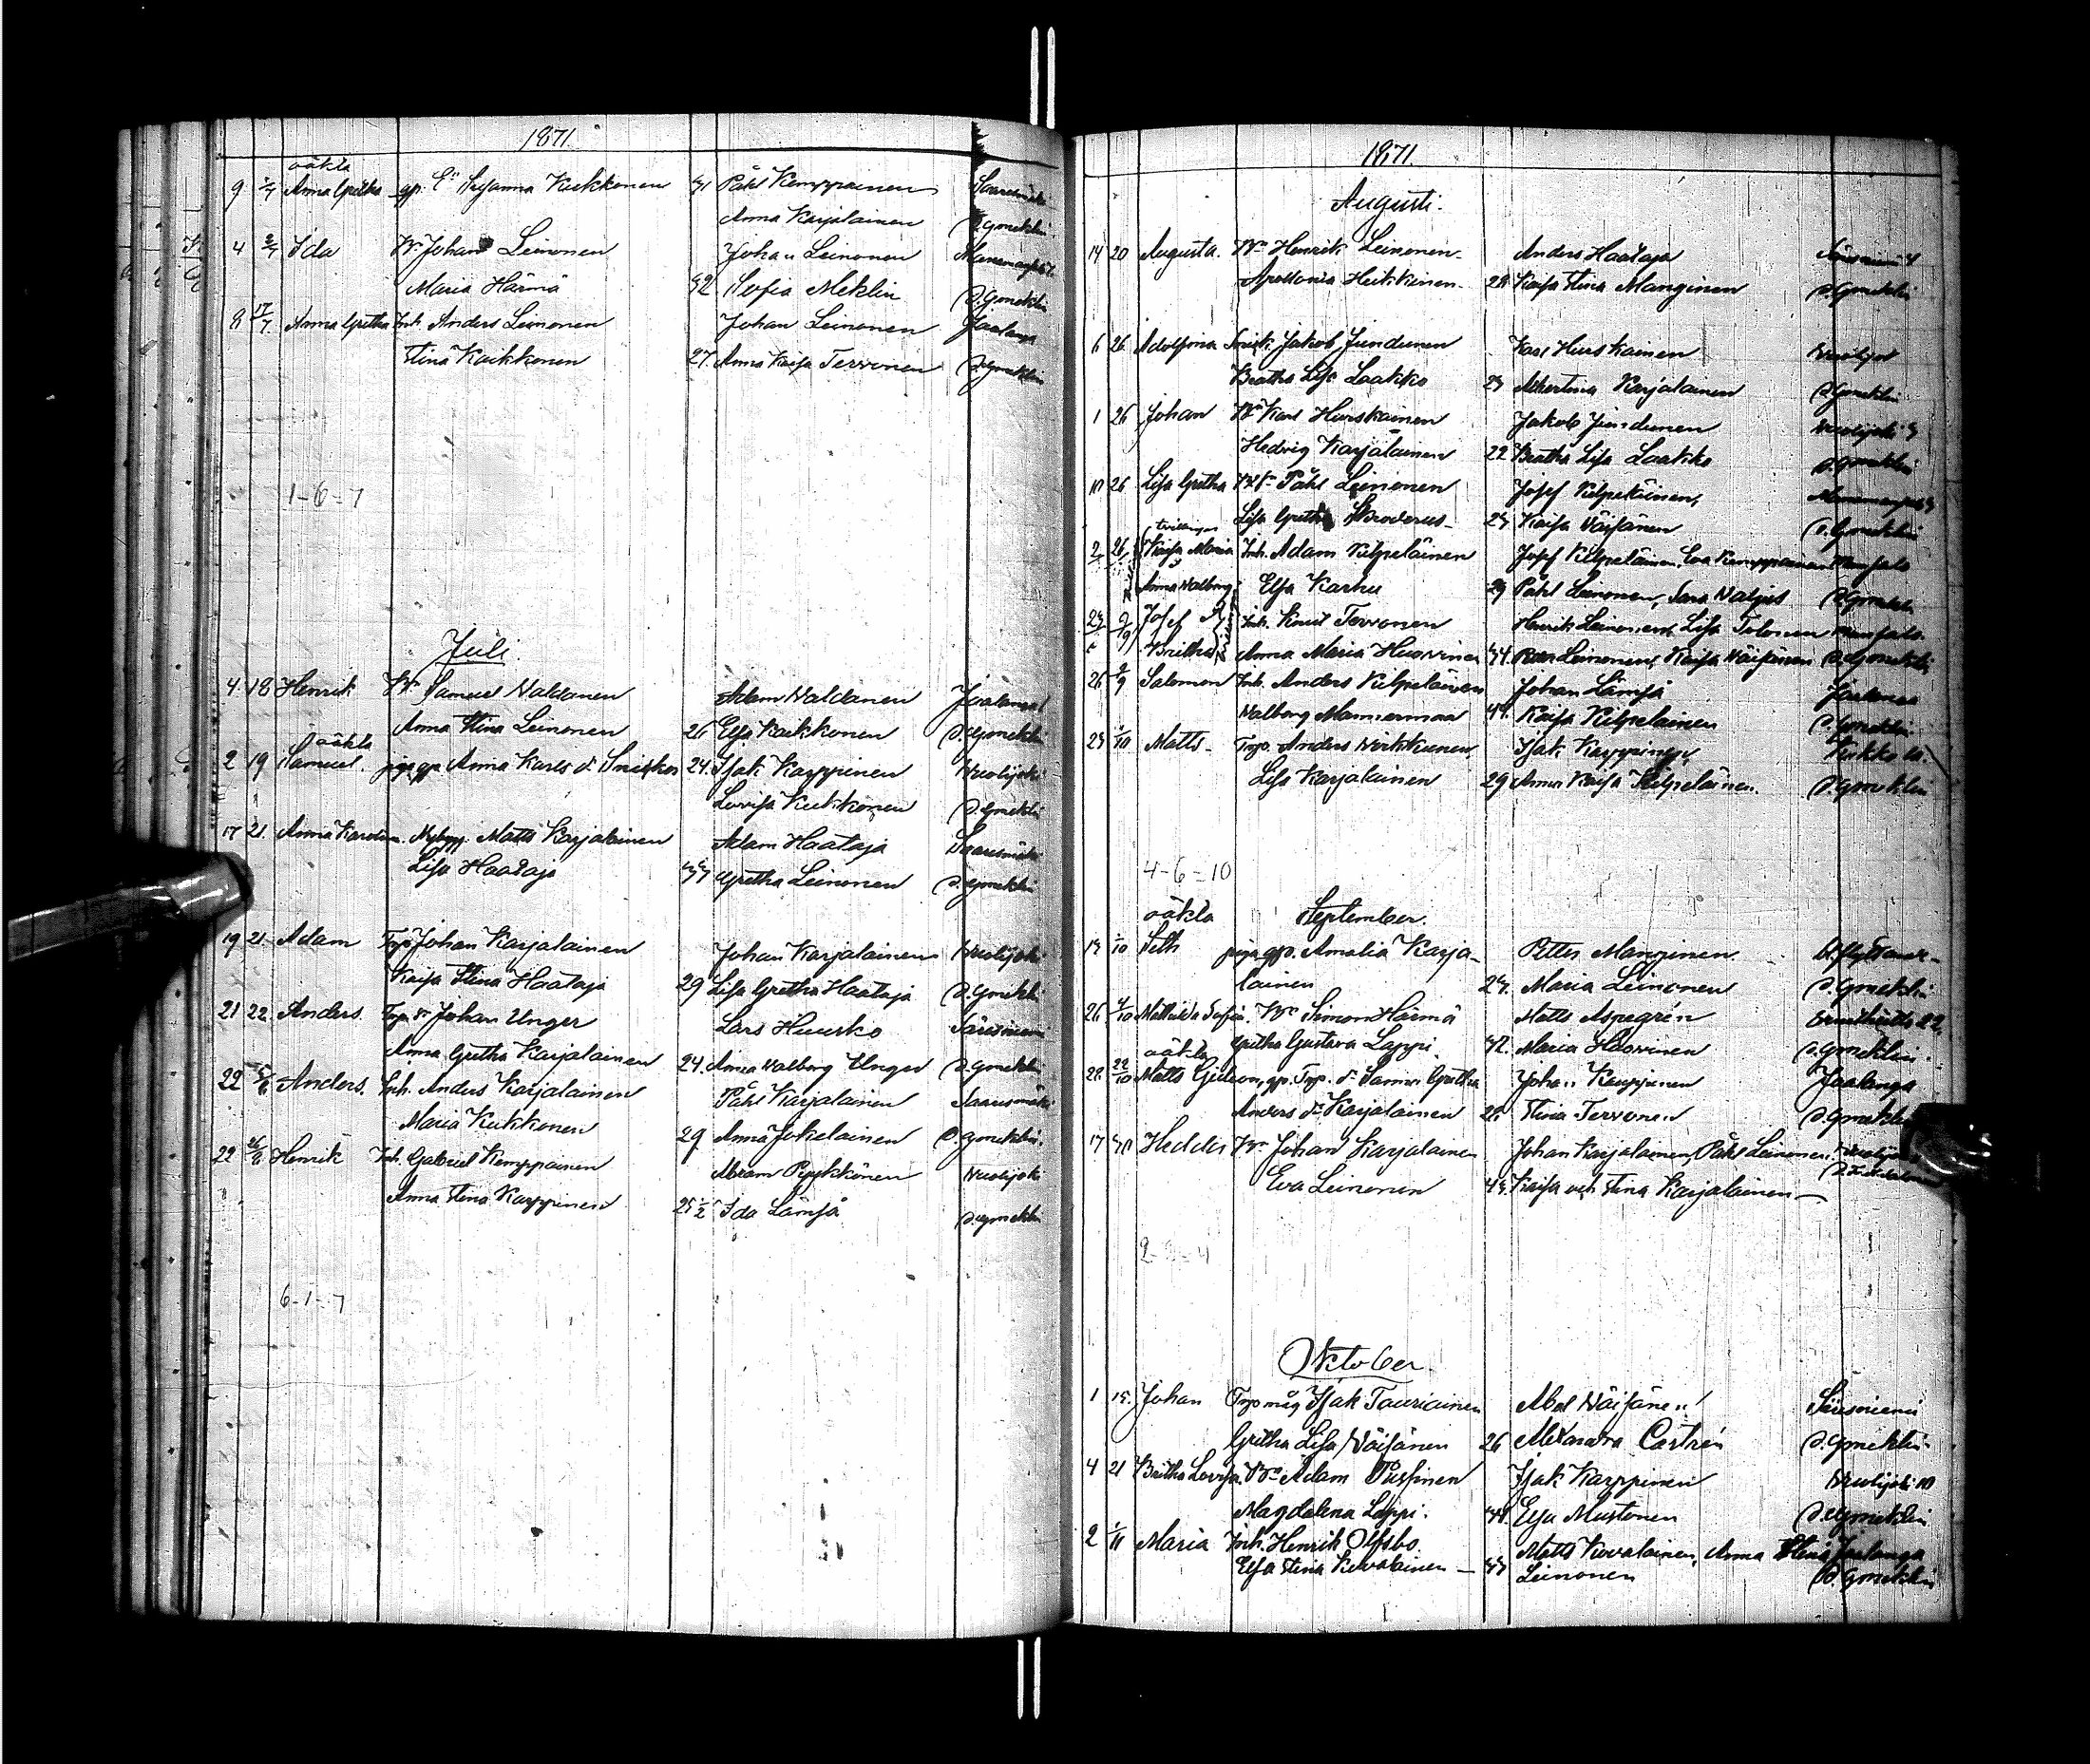 1871
oäkta
9 2/7 Anna Gretha gp. Eª Susanna Kukkonen 31 Påhl Kemppainen Saaresmäki
Anna Karjalainen d. Gmeklin
4 2/7 Ida Bn Johan Leinonen Johan Leinonen
Maria Härmä 32 Sofia Meklin d. Gmeklin
8 17/7 Anna Gretha Inh. Anders Leinonen Johan Leinonen Jaalanga
Stina Kaikkonen 27. Anna Kaisa Tervonen d. Gmeklin
1-6=7
Juli.
4 18 Henrik Bn Samuel Valdanen Adam Valdanen Jaalanga
Anna Stina Leinonen 26 Elsa Kaikkonen d. Gmeklin
oäkta
2 19 Samuel. piga gp. Anna Karls dr 24. Isak Karppinen Vuolijoki
Lovisa Kukkonen d. Gmeklin
17 21. Anna Karolina. Nybygg. Matts Karjalainen Adam Haataja Saaresmäki
Lisa Haataja 33 Gretha Leinonen d. Gmeklin
19 21 Adam Torp. Johan Karjalainen Johan Karjalainen Vuolijoki
Kaisa Stina Haataja 29 Lisa Gretha Haataja d. Gmeklin
21 22. Anders. Torp. Johan Unger Lars Huusko Säresniemi
Anna Gretha Karjalainen 24. Anna Valborg Unger d. Gmeklin
22 Anders. Inh. Anders Karjalainen Påhl Karjalainen Saaresmäki
Maria Kukkonen 29 Anna Jokelainen d. Gmeklin.
22 26/8 Henrik Inh. Gabriel Kemppainen Abram Pyykkönen Vuolijoki
Anna Stina Karppinen 25 1/2 Ida Lämsä d. Gmeklin
6-1-7
1871.
Augusti.
14 20 Augusta. Bn Henrik Leinonen Anders Haataja Säresniemi 4
Apollonia Heikkinen 28 Kaisa Stina Manginen d. Gmeklin
6 26 Adolfina Jakob Jundunen Karl Hurskainen Vuolijoki
Beatha Lisa Laakko 23 Albertina Karjalainen d. Gmeklin
1 26 Johan Bn Karl Hurskainen Jakob Jundunen Vuolijoki 3
Hedvig Karjalainen 22 Beatha Lisa Laakko d. Gmeklin
10 26 Lisa Gretha Bn Påhl Leinonen Josef Kilpeläinen,
Lisa Gretha Broderus 23 Kaisa Väisänen d. Gmeklin
tvillingar
2 26 Kaisa Maria Inh. Adam Kilpeläinen Josef Kilpeläinen, Eva Kemppainen
Anna Valborg Elsa Karhu 29 Påhl Leinonen, Sara d. Gmeklin
23 2/9 Josef Inh. Knut Tervonen Henrik Leinonen, Lisa Tolonen
Britha Anna Maria Huovinen 34. Leinonen, Kaisa Väisänen d. Gmeklin
26 2/9 Salomon Inh. Anders Kilpeläinen Johan Lämsä Jaalanga
Valborg Mannermaa 41. Kaisa Kilpeläinen d. Gmeklin
23 1/10 Matts Torp. Anders Heikkinen, Isak Karppinen Kukkola.
Lisa Karjalainen 29 Anna Kaisa Kilpeläinen d. Gmeklin
4-6=10
oäkta September.
13 1/10 Seth piga gp. Amalia Karja- Petter Manginen
lainen 23. Maria Leinonen d. Gmeklin
26 4/10 Mathilda Sofia. Bn Simon Härmä Matts Aspegrén
oäkta Gretha Gustava Lappi. 42. Maria Huovinen d. Gmeklin.
28. 22/10 Matts Gideon, gp. Torp. dr Sanna Gretha Johan Karppinen Jaalanga
Anders dr Karjalainen 21. Stina Tervonen d. Gmeklin
17 30 Hedda Bn Johan Karjalainen Johan Karjalainen, Påhl Leinonen, Vuolijoki
Eva Leinonen 43. Kaisa och Stina Karjalainen
2-2=4
Oktober.
1 15. Johan Torp måg Isak Tauriainen Abel Väisänen Säresniemi
Gretha Lisa Väisänen 26 Alexandra Castrén d. Gmeklin
4 21 Britha Lovisa. Bn Adam Pursinen Isak Karppinen Vuolijoki 10
Magdalena Lappi. 41. Elsa Mustonen d. Gmeklin
2 1/11 Maria Inh. Henrik Olfsbo. Matts Kovalainen, Anna Stina Jaalanga
Elsa Stina Kovalainen 33 Leinonen d. Gmeklin